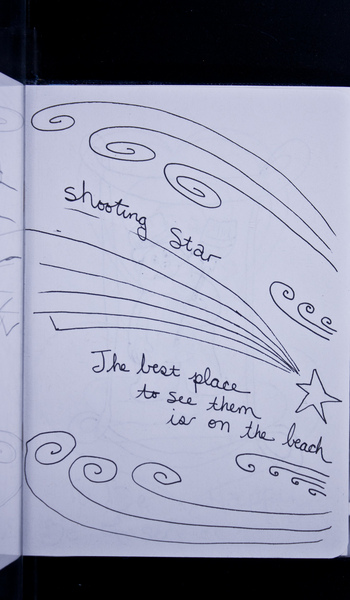 shooting Star
The best place
to see them
is on the beach